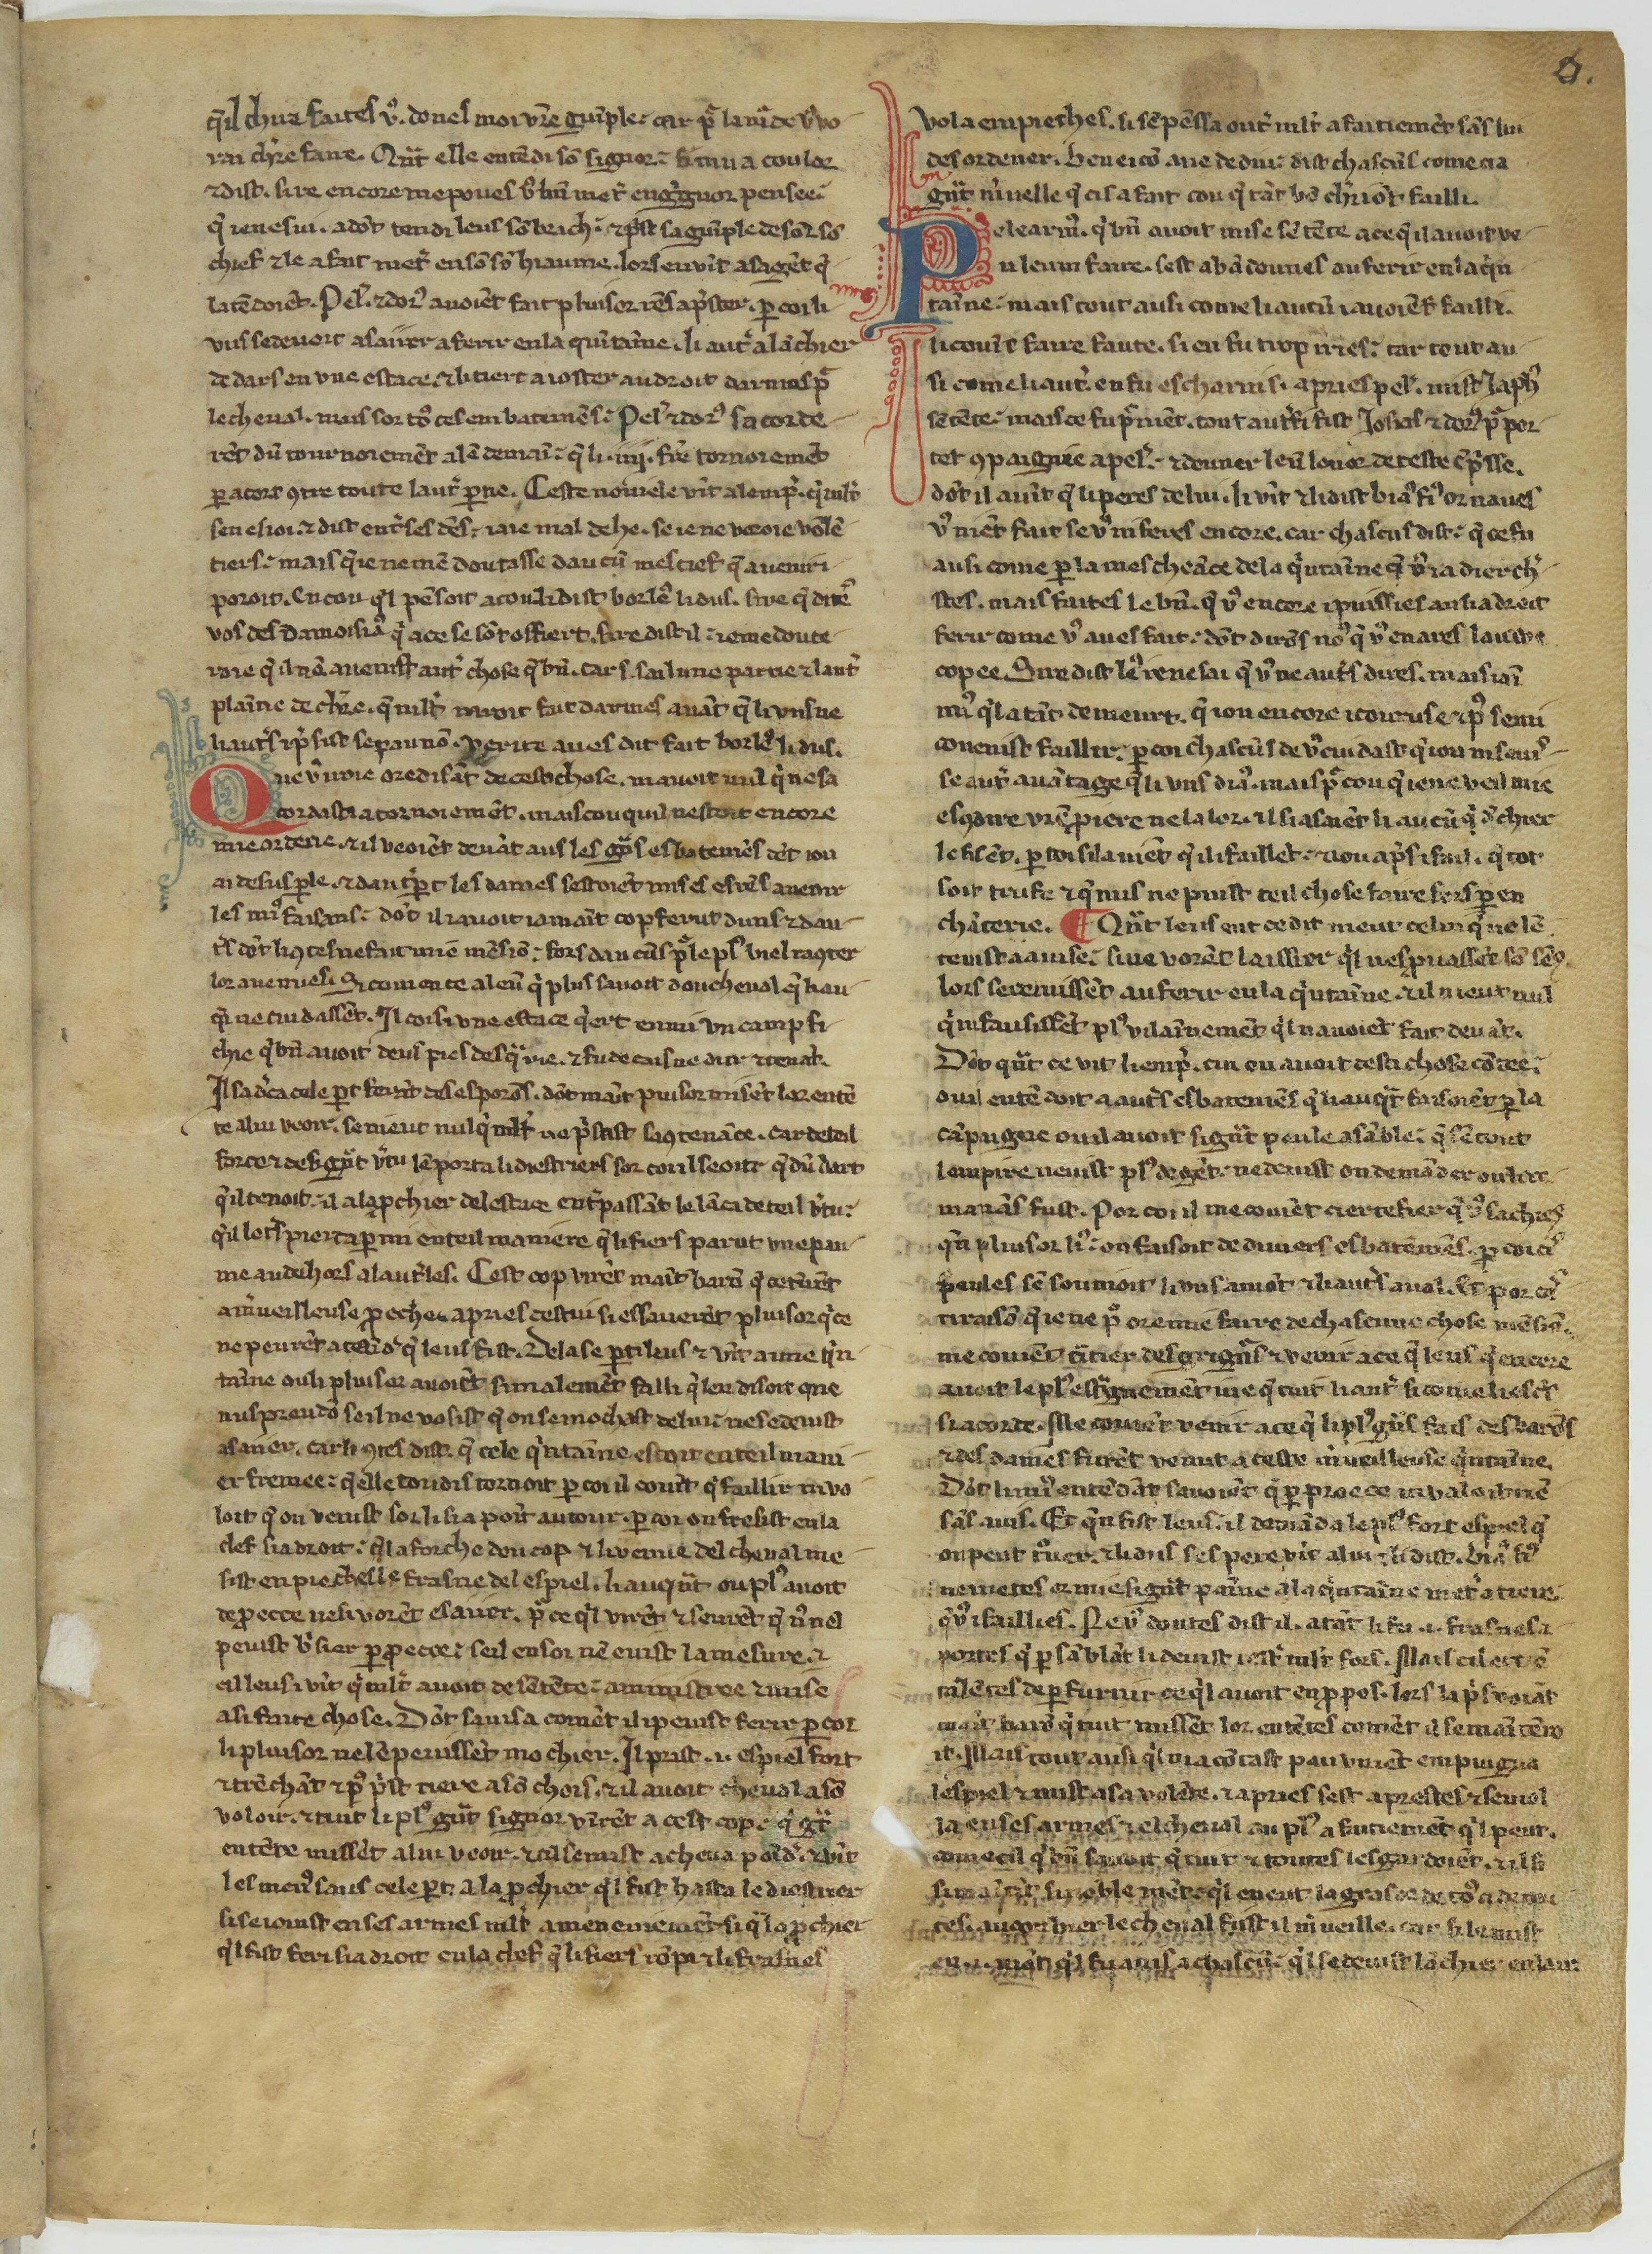 q̃il chua faites vꝰ. dones moi vr̃e guimple. car pͣ lamͥde vo
rai ch'r̃e faire. Qͣnt elle entẽdi sõ signor. si mua coulor
⁊ dist. sire encore me poues vꝰ bñ metͬ en gregnor pensee.
q̃ ie ne sui. adõt tendi leus sõ brach. ⁊ pͥst sa guimple desor sõ
chief ⁊ le a fait metͬ en sõ sõ hiaume. lors en vĩt a sa gẽt q̃
latẽdoiẽt. Pelꝰ. ⁊ dorꝰ auoiẽt fait pluisor rẽs apͥster. ꝑ coi li
vns se deuoit asaiier a ferir en la quintaĩne. li autͬ a lãchier
de dars en vne estace. ⁊ li tiers a ioster au droit darmes pͣ
le cheual. mais sor toꝰ ces embatemẽs. Pelꝰ ⁊ dorꝰ sacorde
rẽt dũ tournoiemẽt a lẽdemaĩ. q̃ li .iiij. fr̃e tornoiemẽt
ꝑ acors ꝯtre toute lautͬ ꝑtie. Ceste nouuele vĩt a lempͬ. q̃ mlt̃
sen esioi. ⁊ dist entͬ ses dẽs. iaie mal dehe. se ie ne veroie volẽ
tiers. mais q̃ ie ne mẽ doutasse daucũ meschief q̃ auenir i
poroit. En cou q̃l pẽsoit a cou li dist borlẽꝰ li dus. sire q̃ dites
vos des damoisiaꝰ q̃ a ce se sõt offiert. sire dist il. ie me doute
roie q̃ il nẽ auenist autͬ chose q̃ bñ. car .s. sai lune partie ⁊ lautͬ
plaĩne de ch'r̃e. q̃ mlt̃ auroit fait darmes auãt q̃ li vns ne
li autͬs ipͥsist se pau nõ. Verite aues dit fait borlẽꝰ li dus.
Que vꝰ iroie ore disãt de ceste chose. ni auoit nul q̃ ne sa
cordast a tornoiemẽt. mais cou quil nestoit encore
mie ordene. ⁊ il veoiẽt deuãt aus les gͣns esbatemẽs dõt iou
ai desus ꝑle. ⁊ dautͬ ꝑt les dames sestoiẽt mises es rẽs a veoir
les mͥꝰ faisans. dõt il i auoit iamaĩt cop ferut dũs ⁊ dau
tͬs dõt li ꝯtes ne fait mie mẽsiõ. fors daucũs pͣ le plꝰ biel raꝯter
lor auenues. Si comente a leũ q̃ plus sauoit dou cheual q̃ li au
q̃ ne cuidassẽt. Il coisi vne estace q̃ ert enmi vn camp fi
chie q̃ bñ auoit deus pies des qͣrrie. ⁊ fu de caisne dur ⁊ tenãt.
Il sadrẽca cele ꝑt ferãt des esporõs. dõt maĩt pluisor misẽt lor entẽ
te a lui veoir. se nient nul q̃ mlt̃ ne pͥsast sa ꝯtenãce. car de teil
force ⁊ de si gͣnt vͥtu lẽporta li diestriers sor coi il seoit. q̃ dũ dart
q̃ il tenoit. il a lapͬchier de lestace entͬpassãt le lãca de teil vͥtu.
q̃il le tͬspierca ꝑ mi en teil maniere q̃ li fiers parut vne pau
me au dehors a lautͬ les. Cest cop virẽt maĩt barõ q̃ le tiñt
a mͥueilleuse ꝓeche. apries cestui si essaierẽt pluisor q̃ ce
ne peurẽt ataĩdͬ q̃ leus fist. De la se ꝑti leus ⁊ vĩt a une q̃n
taĩne ou li pluisor auoiẽt si malemẽt falli q̃ leu disoit que
nus preudõ se il ne vosist q̃ on se mochast de lui. ne se deuist
asaiier. car li ꝯtes dist. q̃ cele q̃ntaĩne estoit en teil mani
er fremee. q̃ elle toudis tornoit ꝑ coi il couĩt q̃ faillir ni vo
loit q̃ on venist sor li si a point autour. ꝑ coi on fresist en la
clef si a droit. q̃l a forche dou cop ⁊ li venue del cheual me
sist en pieches le frasne del espiel. li auqͣnt ou plꝰ auoit
de ꝓecce ne si vorẽt esaiier. pͣ ce q̃l virẽt ⁊ seurẽt q̃ nꝰ nel
peuist bͥsier ꝑ ꝓecce. se il en soi nẽ euist la mesure. ⁊
cil leus i vĩt q̃ mlt̃ auoit de sẽtẽte. aministree ⁊ mise
a si faite chose. Dõt sauisa comẽt il i peuist ferir ꝑ coi
li pluisor ne lẽ peuissẽt mochier. Il prist .i. espiel fort
⁊ trẽchãt ⁊ pꝰ pͥst tiere a sõ chois. ⁊ il auoit cheual a sõ
voloir. ⁊ tuit li plꝰ gͣnt signor vĩrẽt a cest cop. q̃ gͣnt
entẽte missẽt a lui veoir. ⁊ cil se mist a cheual poĩdͬ. ⁊ vĩt
les menꝰ saus cele ꝑt. A lapͬchier q̃l fist hasta le diestrier
li se ioinst en ses armes mlt̃ amenemẽt. si q̃ lapͬchier
q̃l fist feri si a droit en la clef q̃ li fiers rõpi ⁊ li frasnes
vola en pieches. si sẽ pẽssa outͬ mlt̃ afaitiemẽt sãs lui
desordener. bien eicõ aue de dui. dist chascũs come cia
gͣnt mͥuelle q̃ cis a fait cou q̃ tãt bõ ch'r i õt failli.
Pelearmꝰ. q̃ bñ auoit mise sẽtẽte a ce q̃ il auoit ve
u leuin faire. sest abãdounes au ferir en la q̃n
taĩne. mais tout ausi come li autͬ i auoiẽt failli.
li couĩt faire faute. si en fu trop iries. car tout au
si come li autͬ en fu escharnis. apries pelꝰ. mist Japhꝰ
sẽtẽte. mais ce fu pͣ niẽt. tout autͬsi fist Josias ⁊ dorꝰ pͣ por
ter ꝯpaignie a pelꝰ. ⁊ douner leũ lonor de ceste ẽpͥsse.
dõt il auĩt q̃ li peres de lui. li vĩt ⁊ li dist biaꝰ fiꝰ or naues
vꝰ niẽt fait se vꝰ ni feres encore. car chascus dist. q̃ ce fu
ausi come ꝑ la mescheãce de la q̃ntaĩne q̃ vꝰ i adierch'
stes. mais faites le bñ. q̃ vꝰ encore i puissies ausi a droit
ferir come vꝰ aues fait. dõt dirõs noꝰ q̃ vꝰ en ares lauoir
copee. Sire dist leꝰ ie ne sai q̃ vꝰ ne autͬs dires. mais iai
mͥ q̃ la tãt demeurt. q̃ iou encore i couruse ⁊ pꝰ se mi
couenist faillir. ꝑ coi chascũs de vꝰ cuidast q̃ iou ni seuis
se autͬ auãtage q̃ li vns diaꝰ. mais pͣ cou q̃ iene veil mie
esꝯdire vr̃e ꝓiere ne la lor. il si asaiẽt li aucũ q̃ dẽchier
le fisẽt. ꝑ coi sil auiẽt q̃ il i faillet. ⁊ iou apͥs i fail. q̃ tot
soit trufe ⁊ q̃ nus ne puist teil chose faire fors ꝑ en
chãterie. ¶ Qͣnt leus eut ce dit nieut celui q̃ ne lẽ
tenist a auise. si ne vorẽt laissier q̃l nesꝓuassẽt sõ sẽs.
lors se remissẽt au ferir en la q̃ntaĩne. ⁊ il nieut nul
q̃ ni fausissẽt plꝰ vilaĩnemẽt q̃l nauoiẽt fait deuãt.
Dõt qͣnt ce vit li empͬ. cui on auoit cesti chose cõtee.
ou il entẽdoit a autͬs esbatemẽs q̃ li auqͣnt faisoiẽt ꝑ la
cãpaigne ou il auoit si gͣnt peule asãble. q̃ sẽ tout
lempire neuist plꝰ de gẽt. ne deuist on demãder ou li re
manãs fust. Por coi il me couiẽt ciertefier q̃ vꝰ sachies
q̃n pluisor liꝰ. on faisoit de diuers esbatemẽs. ꝑ coi ciꝰ
peules sẽ soumoit li vns amõt ⁊ li autͬs aual. Et por ceͥ
ti raisõ q̃ ie ne pꝰ ore mie faire de chascune chose mẽsiõ.
me couiẽt tͣitier des grignꝰs ⁊ venir a ce q̃ leus q̃ encore
auoit le plꝰ estͣgnemẽt iue q̃ tuit li autͬ si come li escͬs
si acorde. Me couiẽt venir a ce q̃ li plꝰ gͣns fais des barõs
⁊ des dames furẽt venut a ceste mͥueilleuse q̃ntaĩne.
Dõt li miꝰ entẽdãt sauoiẽt q̃ ꝑ proece ni valoit riẽ
sãs auis. Et q̃n fist leus. il demãda le plꝰ fort espiel q̃
on peut tͬuer. ⁊ li dus ses pere vĩt a lui ⁊ li dist. biaꝰ fiꝰ
ne metes or mie si gͣnt paĩne a la q̃ntaĩne metͬ a tiere
q̃ vꝰ i faillies. Ne vꝰ doutes dist il. atãt li fu .i. frasnes a
portes q̃ ꝑ sãblãt li deuist iestͬ mlt̃ fors. Mais cil ert ẽ
talẽtes de ꝑfurnir ce q̃l auoit en ꝓpos. lors lapͥs voiãt
maĩt barõ q̃ tuit missẽt lor entẽtes comẽt il se maĩtẽro
it. Mais tout ausi q̃l nia cõtast pau vinrẽt empuigna
lespiel ⁊ mist a sa volẽte. ⁊ apries sest aprestes ⁊ se mol
la en ses armes ⁊ el cheual au plꝰ afaitiemẽt q̃l peut.
come cil q̃ bñ sauoit q̃ tuit ⁊ toutes lesgardoiẽt. ⁊ il si
si maĩtĩt si noblemẽt q̃l en eut la grasce de toꝰ
ces. au ꝓchier le cheual fust il mͥueille. car si le mist
en .i. q̃l fu auis a chascũ. q̃l se deuist lãchier en lair